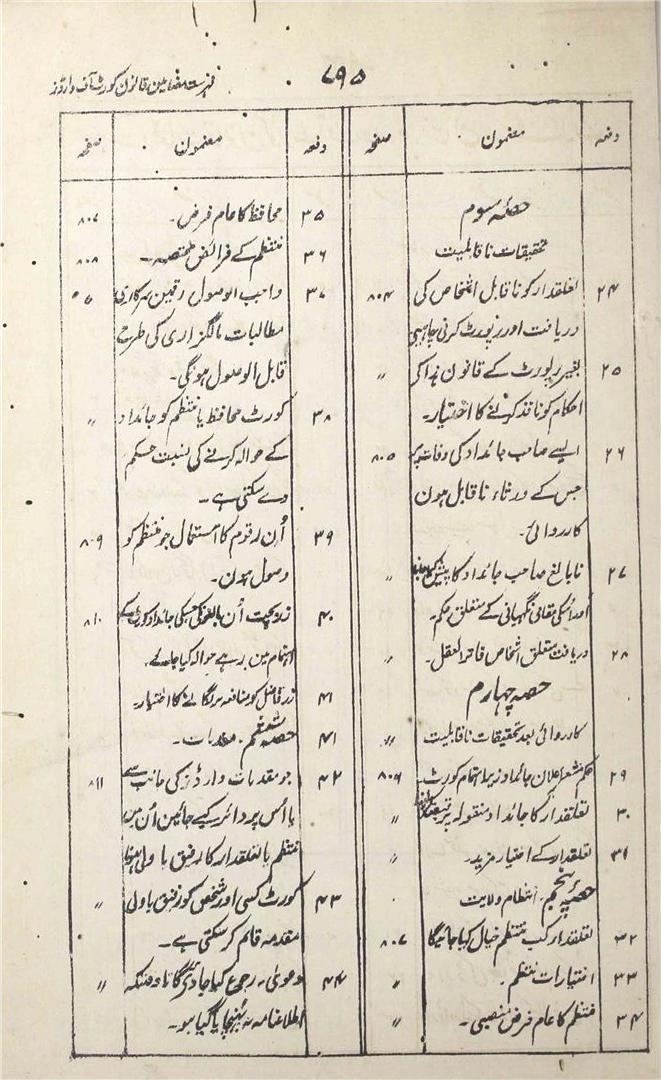 ۷۹۵
فہرست مضامین قانون کورٹ آف وارڈز
دفعہ مضمون صفحہ
حصۂ سوم
تحقیقات ناقابلیت
۲۴ تعلقدار کو ناقابل اشخاص کی ۸۰۴
دریافت اور رپورٹ کرنی چاہیے
۲۵ بغیر رپورٹ کے قانون ہذا کے 〃
احکام کو نافذ کرنے کا اختیار۔
۲۶ ایسے صاحب جائداد کی وفات پر ۸۰۵
جس کے ورثاء ناقابل ہون
کارروائی۔
۲۷ نابالغ صاحب جائداد کا پیش کیا جانا 〃
اور اسکی حفاظتی نگہبانی کے متعلق حکم۔
۲۸ دریافت متعلق اشخاص فاتر العقل۔ 〃
حصہ چہارم
کارروائی بعد تحقیقات ناقابلیت 〃
۲۹ حکم مشعر اعلان جائداد زیر اہتمام کورٹ۔ ۸۰۶
۳۰ تعلقدار کا جائداد منقولہ پر قبضہ کرنا 〃
۳۱ تعلقدار کے اختیار مزید۔ 〃
حصہ پنجم۔ انتظام ولایت
۳۲ تعلقدار کب منتظم خیال کیا جائیگا ۸۰۷
۳۳ اختیارات منتظم۔ 〃
۳۴ منتظم کا عام فرض منصبی۔ 〃
دفعہ مضمون صفحہ
۳۵ محافظ کا عام فرض۔ ۸۰۷
۳۶ منتظم کے فرائض مختصہ۔ ۸۰۸
۳۷ واجب الوصول رقمین سرکاری
مطالبات مالگزاری کی طرح سے
قابل الوصول ہونگی۔
۳۸ کورٹ محافظ یا منتظم کو جائداد 〃
کے حوالہ کرنے کی نسبت حکم
دے سکتی ہے۔
۳۹ اُن رقوم کا استعمال جو منتظم کو ۸۰۹
وصول ہون۔
۴۰ زر بچت اُن بالغونکی جنکی جائداد کورٹ کے ۸۱۰
اہتمام مین رہے حوالہ کیا جائے۔
۴۱ زر فاضل کو منافعہ پر لگانے کا اختیار۔
۴۱ حصہ ششم۔ مقدمات۔
۴۲ جو مقدمات وارڈز کی جانب سے ۸۱۱
یا اُس پر دائر کیے جائین اُن مین
منتظم یا تعلقدار کا رفیق یا ولی ہونا
۴۳ کورٹ کسی اور شخص کو رفیق یا ولی 〃
مقدمہ قائم کر سکتی ہے۔
۴۴ دعویٰ۔ رجوع کیا جا دیگا تا وقتیکہ 〃
اطلاعنامہ نہ پہنچایا گیا ہو۔